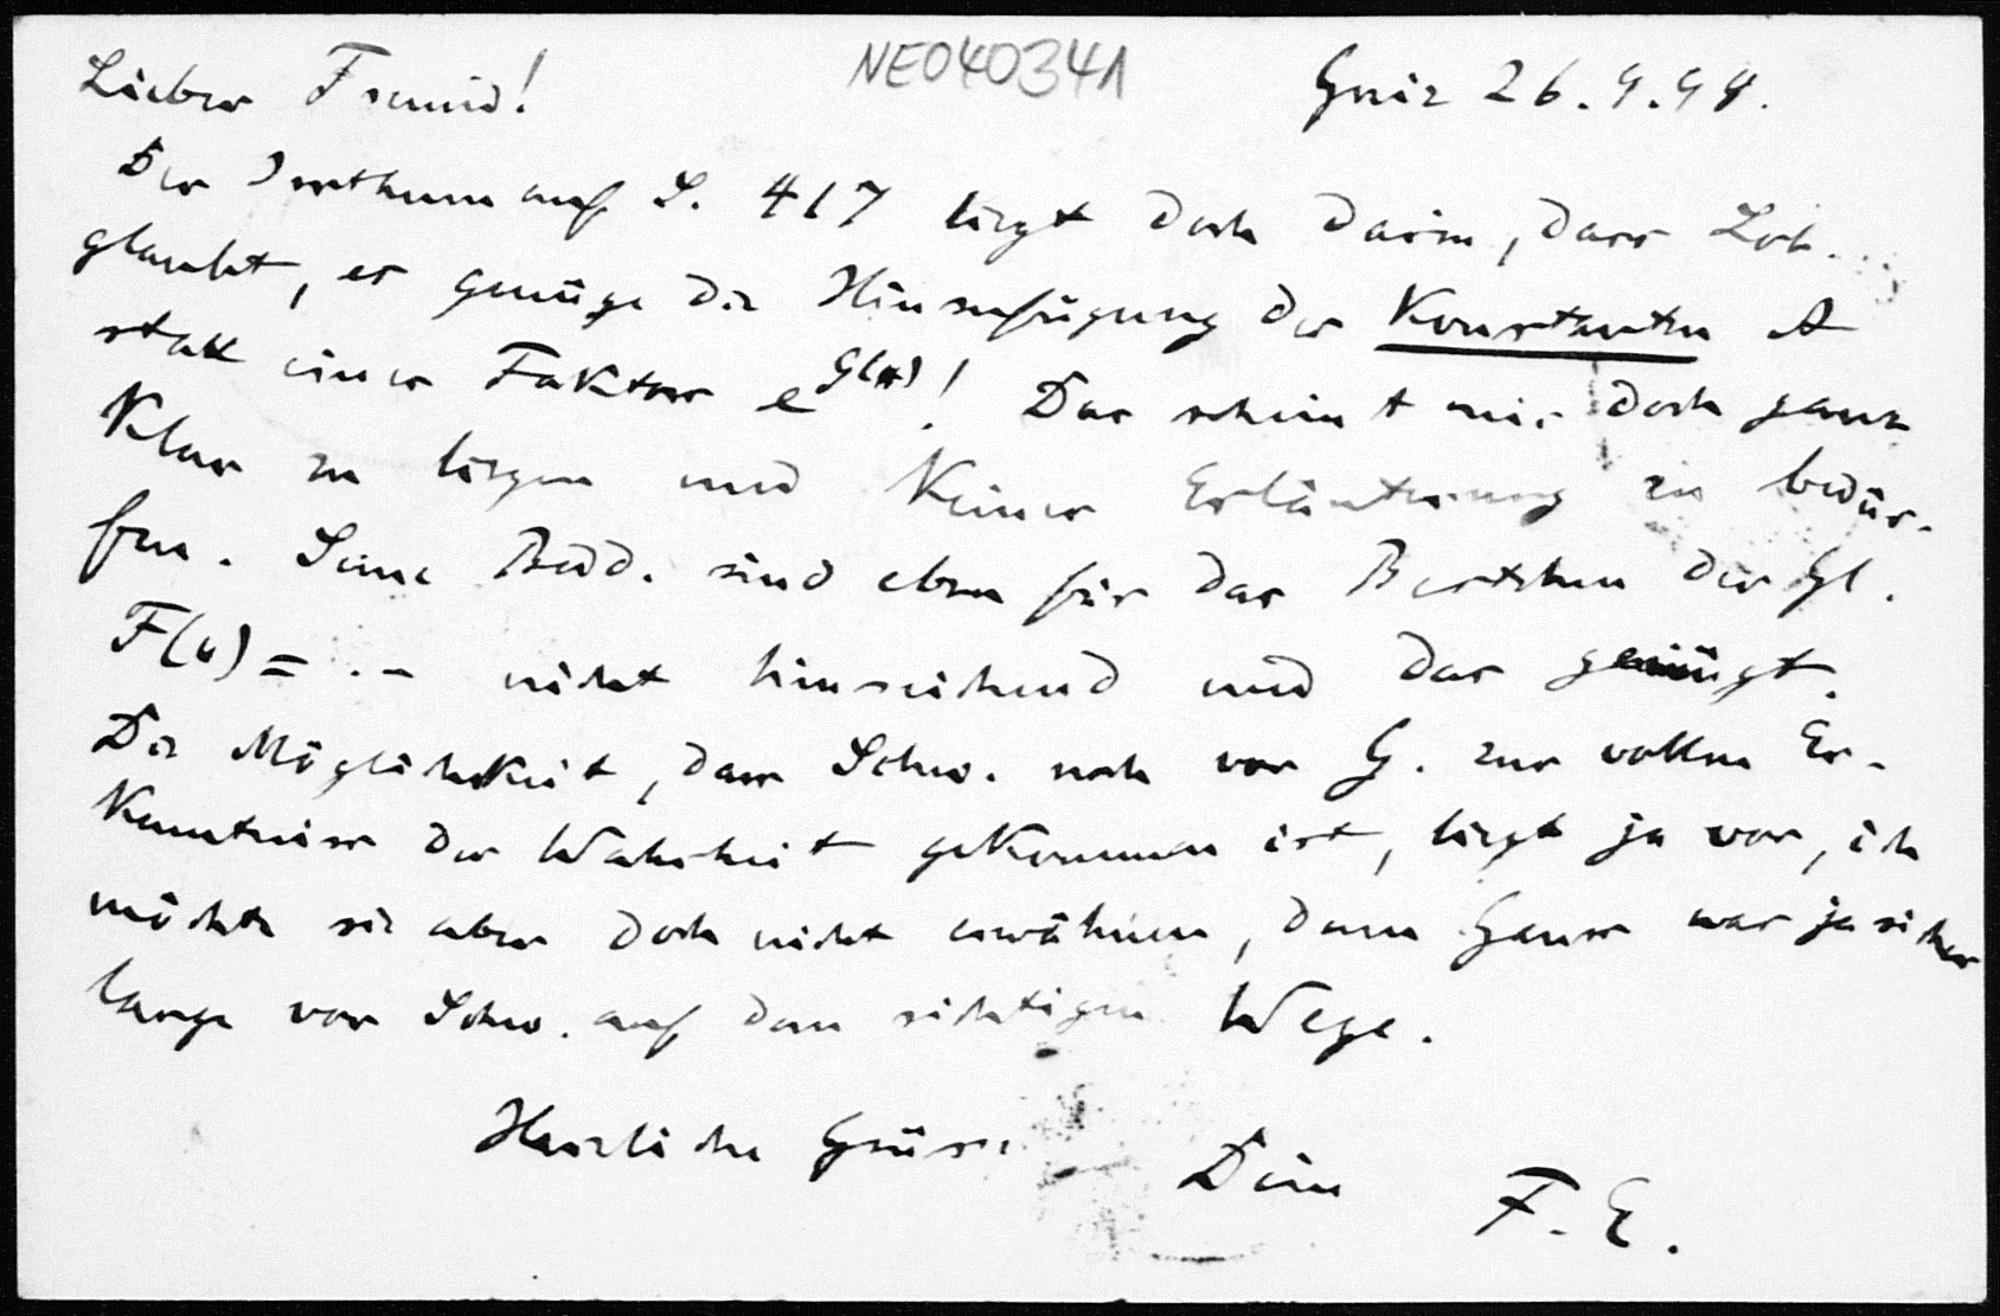 Lieber Freund!
NE040341
Greiz 26.9.98.
Der Irrthum auf S. 417 liegt doch darin, dass Lob...
glaubt, es genüge die Hinzufügung der Konstanten A
statt eines Faktors e^G(x)! Das scheint mir doch ganz
klar zu liegen und keiner Erläuterung zu bedür-
fen. Seine Bedd. sind eben für das Bestehen der Gl.
F(u) = .. – nicht hinreichend und das genügt.
Die Möglichkeit, dass Schw. noch vor G. zur vollen Er-
kenntniss der Wahrheit gekommen ist, liegt ja vor, ich
möchte sie aber doch nicht erwähnen, denn Gauss war ja sicher
lange vor Schw. auf dem richtigen Wege.
Herzliche Grüsse
Dein F. E.